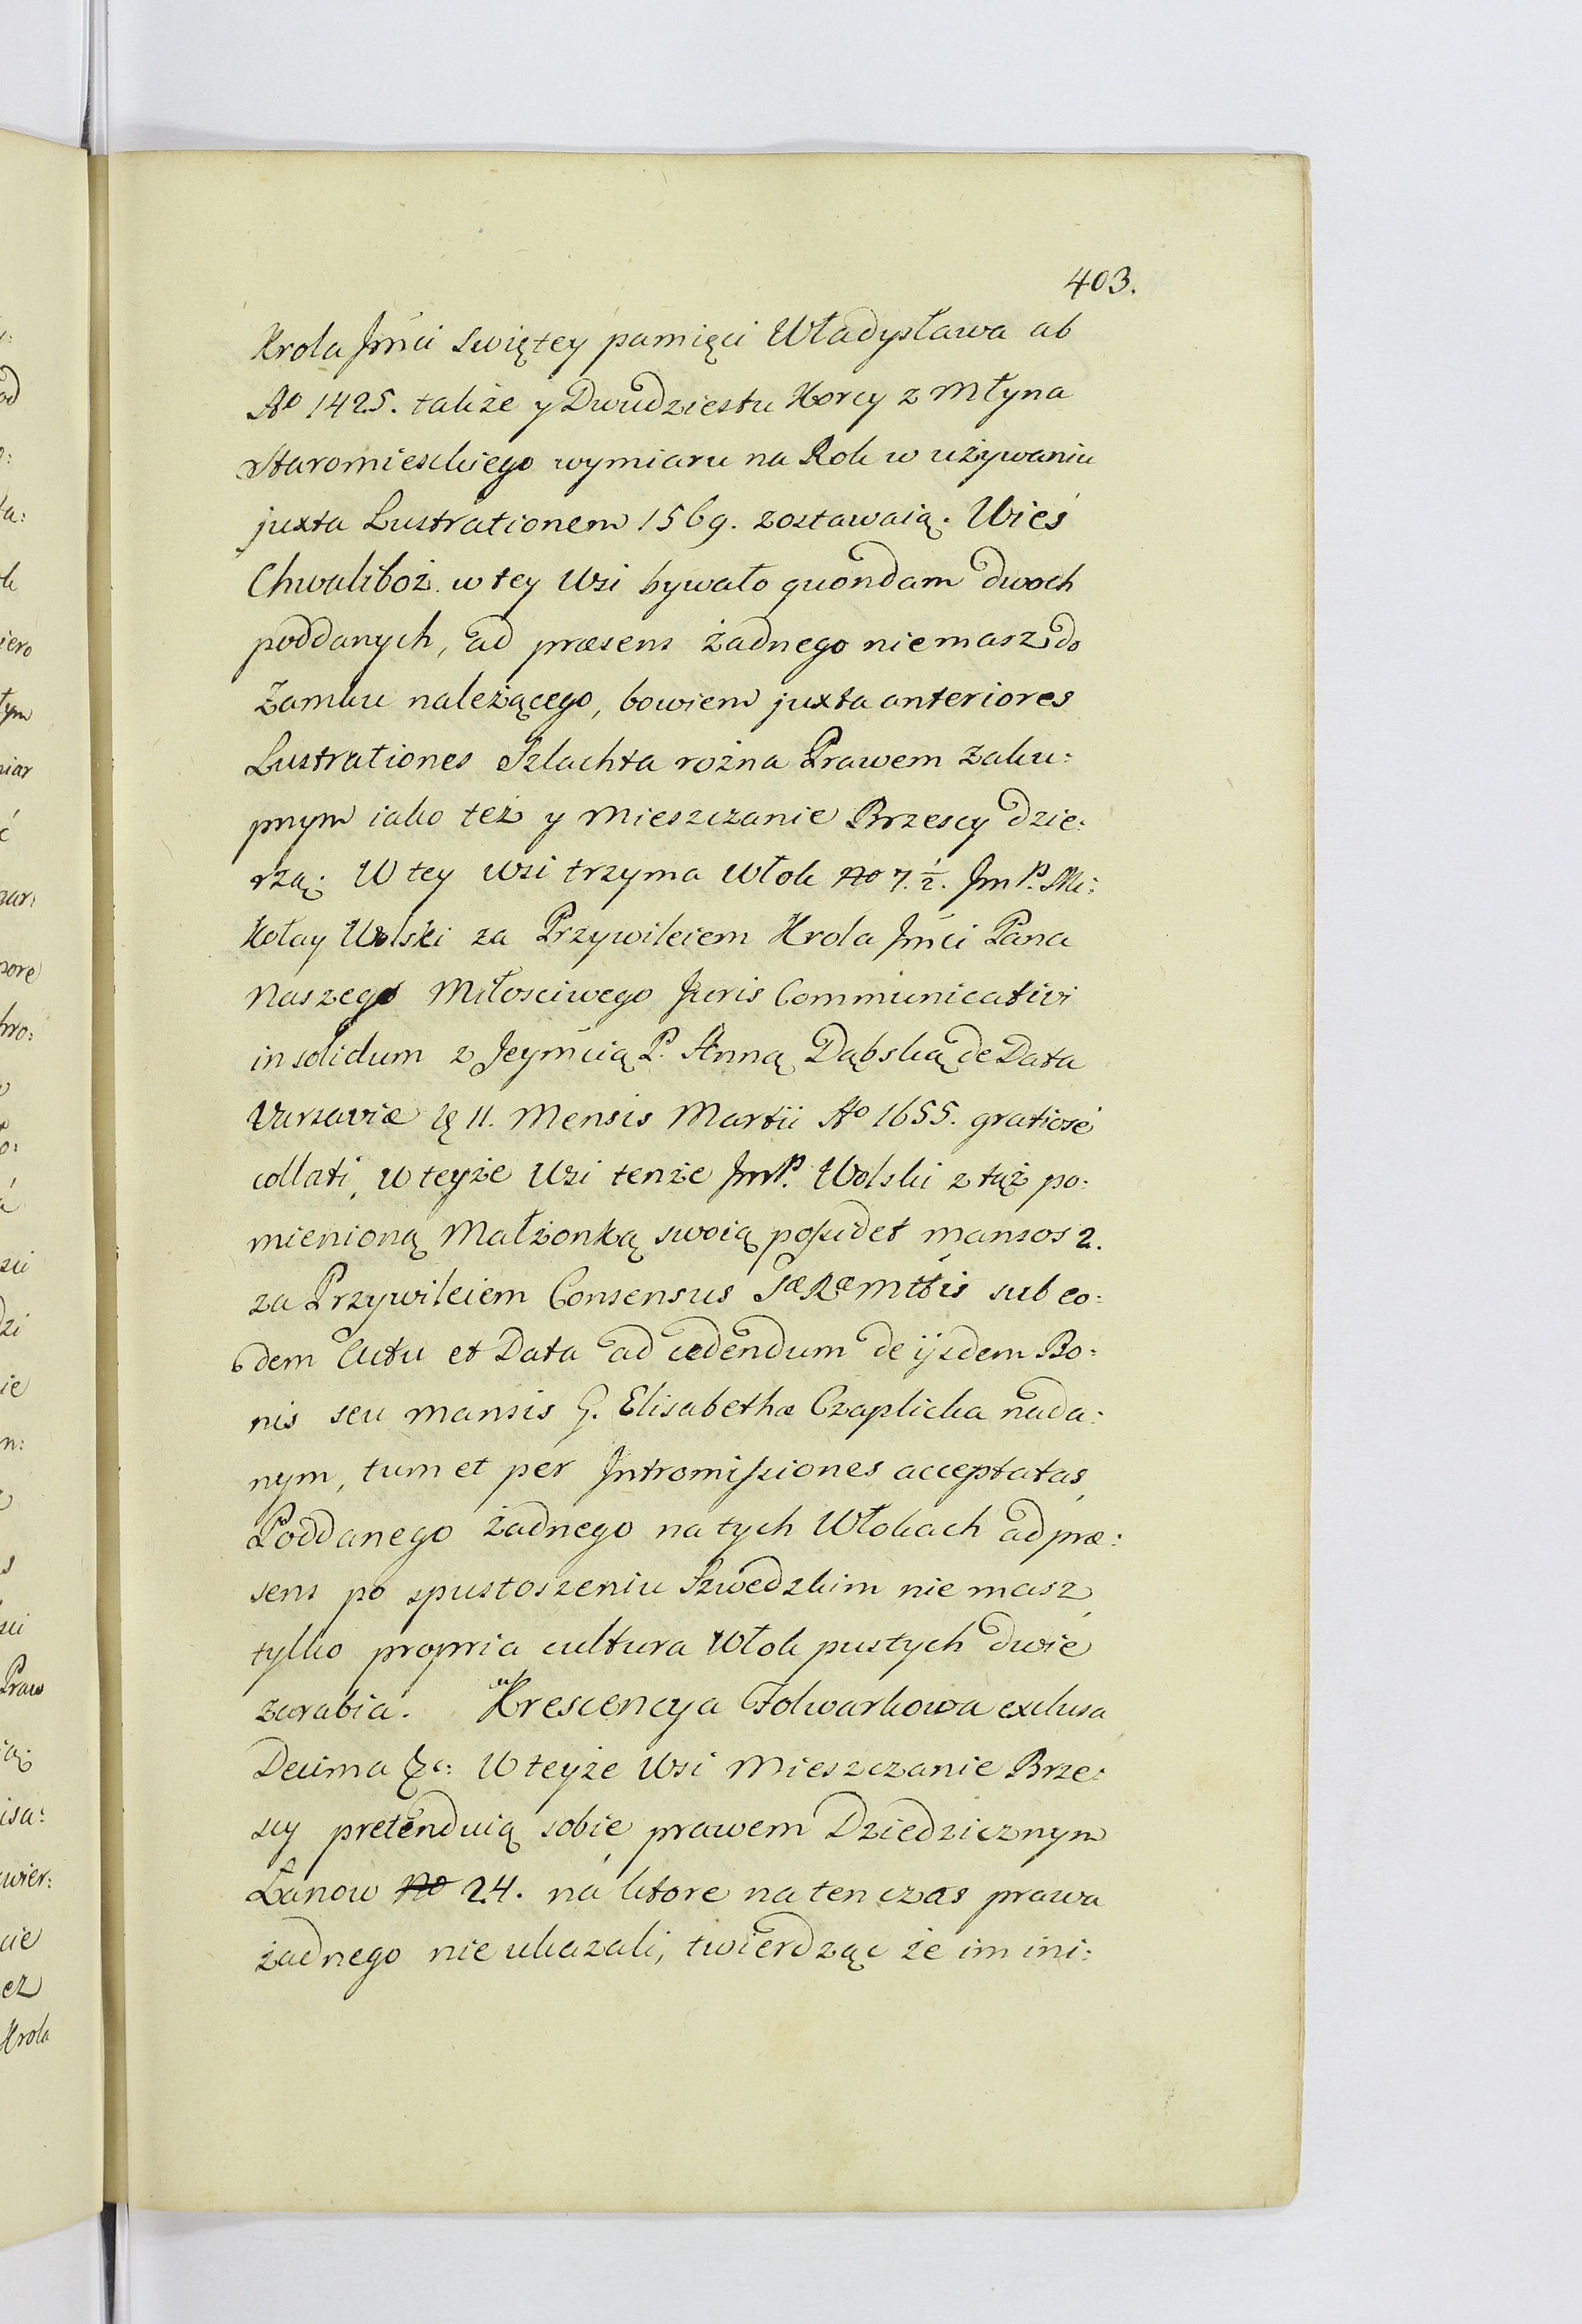 403.
Krola Jmci swiętey pamięci Władysława ab
Ao 1425. także y Dwudziestu Korcy z Młyna
Staromieskiego wymiaru na Rok w używaniu
juxta Lustrationem 1569. zostawaią. Wieś
Chwaliboż. w tey Wsi bywało quondam dwoch
poddanych, ad præsens żadnego niemasz do
Zamku należącego, bowiem juxta anteriores
Lustrationes Szlachta rożna Prawem Zaku:
pnym iako też y Mieszczanie Brzescy dzie:
rżą. W tey wsi trzyma Włok No 7. ½. Jm P. Mi:
kołay Wolski za Przywileiem Krola Jmci Pana
Naszego Miłosciwego Juris Communicativi
in solidum z Jeymcią P. Anną Dąbską de Data
Varsaviæ 11. Mensis Martii Ao 1655. gratiosé
collati, w teyże Wsi tenże JmP. Wolski z tąż po:
mienioną Małżonką swoią possidet mansos 2.
za Przywileiem Consensus Sæ Ræ Mttis sub eo:
dem Actu et Data ad cedendum de ijsdem Bo:
nis seu mansis G. Elisabethæ Czaplicka nada:
nym, tum et per Intromissiones acceptatas,
Poddanego żadnego na tych Włokach ad præ:
sens po spustoszeniu Szwedzkim nie masz,
tylko propria cultura Włok pustych dwie
zarabia. Krescencya Folwarkowa exclusa
Decima &c: W teyże Wsi Mieszczanie Brze:
scy pretenduią sobie prawem Dziedzicznym
Łanow No 24. na ktore na ten czas prawa
żadnego nie ukazali, twierdząc że im ini: